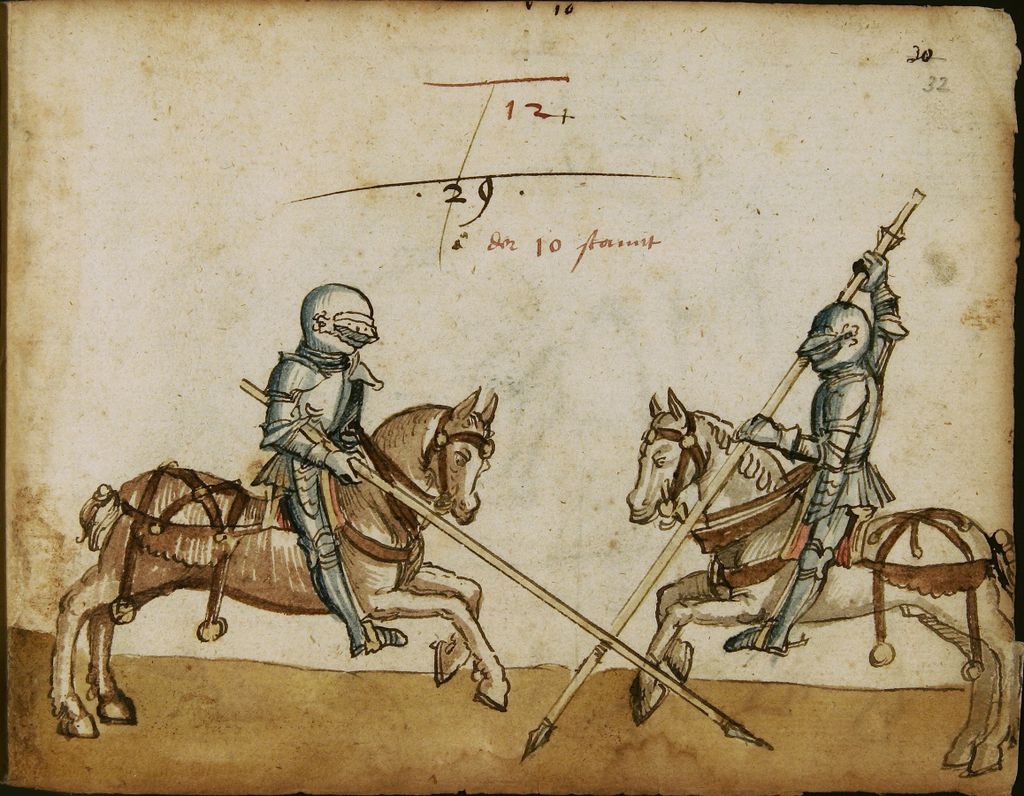 30
32
12
· 29 ·
der 10 stannt